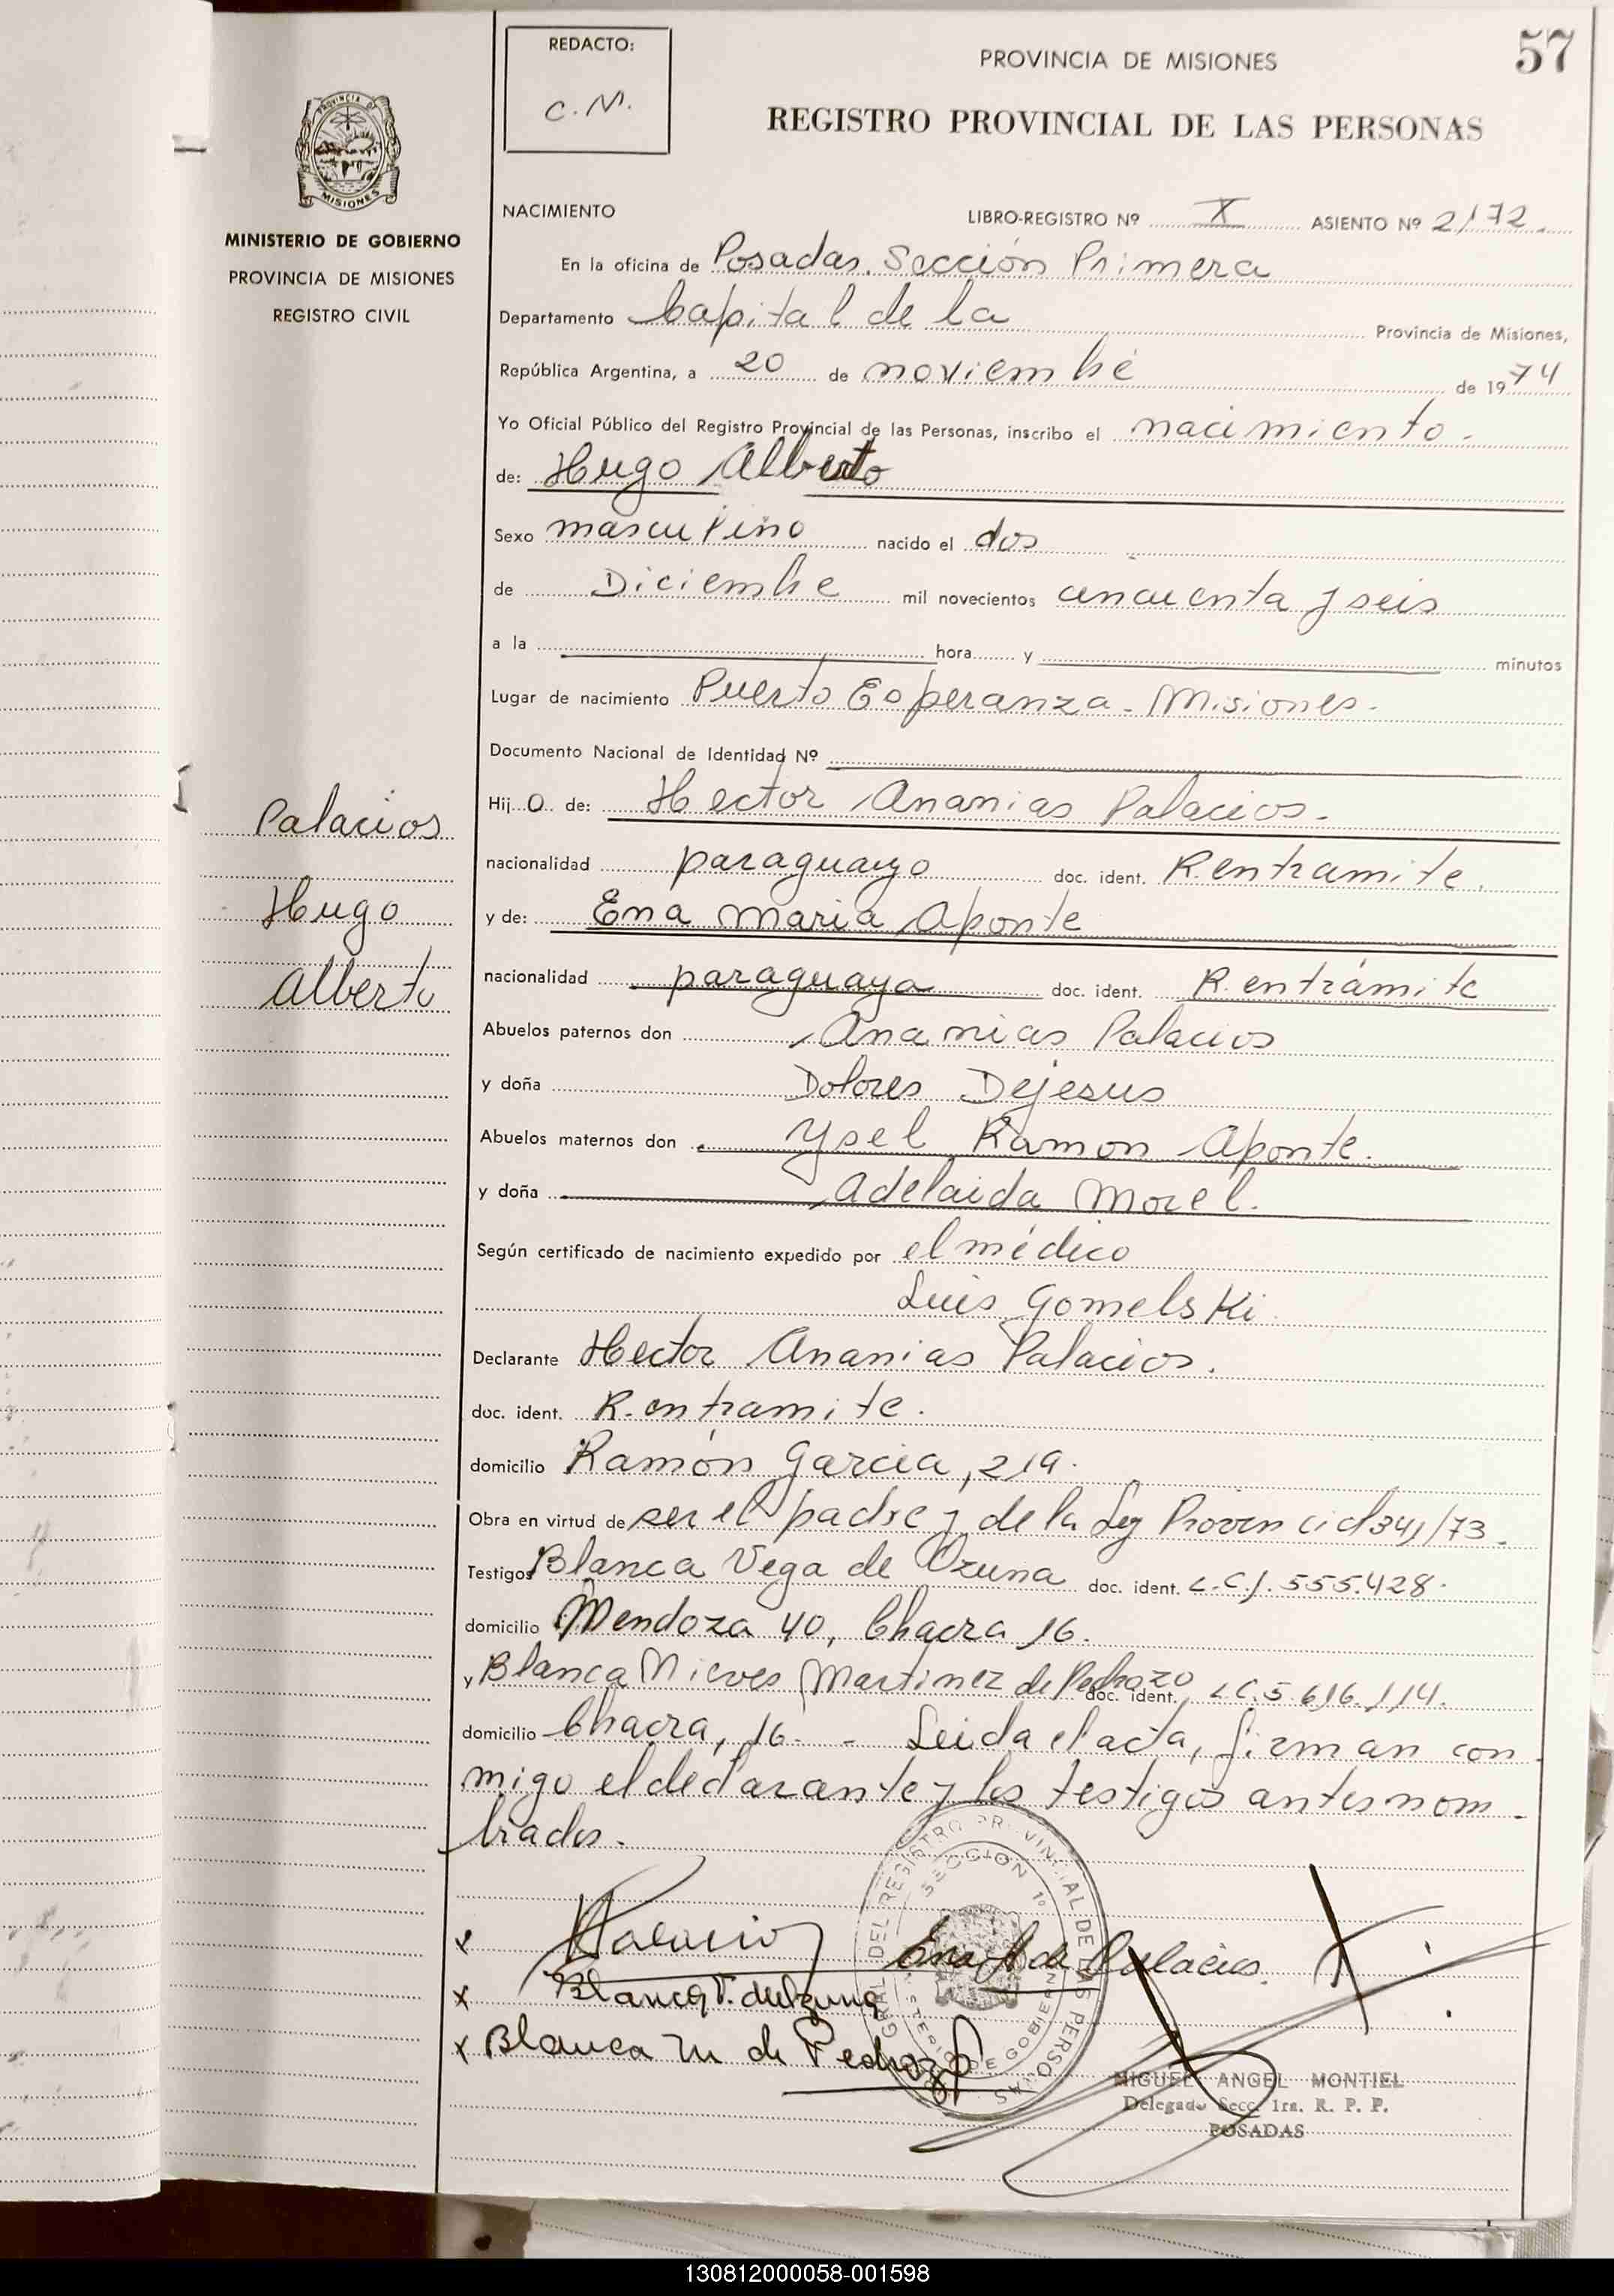 57
REDACTO:
C. M.
PROVINCIA DE MISIONES
REGISTRO PROVINCIAL DE LAS PERSONAS
PROVINCIA DE
MISIONES
MINISTERIO DE GOBIERNO
PROVINCIA DE MISIONES
REGISTRO CIVIL
NACIMIENTO LIBRO-REGISTRO Nº X ASIENTO Nº 2172.
En la oficina de Posadas. Sección Primera
Departamento Capital de la Provincia de Misiones,
República Argentina, a 20 de noviembre de 1974
Yo Oficial Público del Registro Provincial de las Personas, inscribo el nacimiento.
de: Hugo Alberto
Sexo masculino nacido el dos
de Diciembre mil novecientos cincuenta y seis
a la hora y minutos
Lugar de nacimiento Puerto Esperanza - Misiones.
Documento Nacional de Identidad Nº
Hij o de: Hector Ananias Palacios.
nacionalidad paraguayo doc. ident. R. entramite.
y de: Ena Maria Aponte
nacionalidad paraguaya doc. ident. R. entrámite
Abuelos paternos don Ananias Palacios
y doña Dolores Dejesus
Abuelos maternos don Ysel Ramon Aponte.
y doña Adelaida Morel.
Según certificado de nacimiento expedido por el médico
Luis Gomelski
Declarante Hector Ananias Palacios.
doc. ident. R. entramite.
domicilio Ramón Garcia, 219.
Obra en virtud de ser el padre y de la Ley Provincial 341/73.
Testigos Blanca Vega de Ozuna doc. ident. L.C.1.555.428.
domicilio Mendoza 40, Chacra 16.
y Blanca Nieves Martinez de Pedrozo doc. ident. L.C.5.616.114.
domicilio Chacra, 16. - Leida el acta, firman con
migo el declarante y los testigos antes nom-
brados.
Palacios
Hugo
Alberto
x HPalacios Ena A de Palacios.
x Blanca V. de Ozuna
x Blanca M de Pedrozo
REGISTRO PROVINCIAL DE LAS PERSONAS
SECCION 1º
MIGUEL ANGEL MONTIEL
Delegado Secc. 1ra. R. P. P.
POSADAS
130812000058-001598